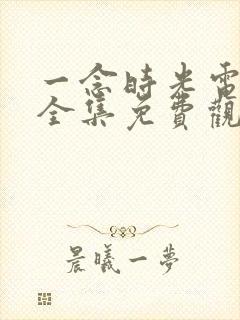 一念時光電
全集免費觀
晨曦一夢